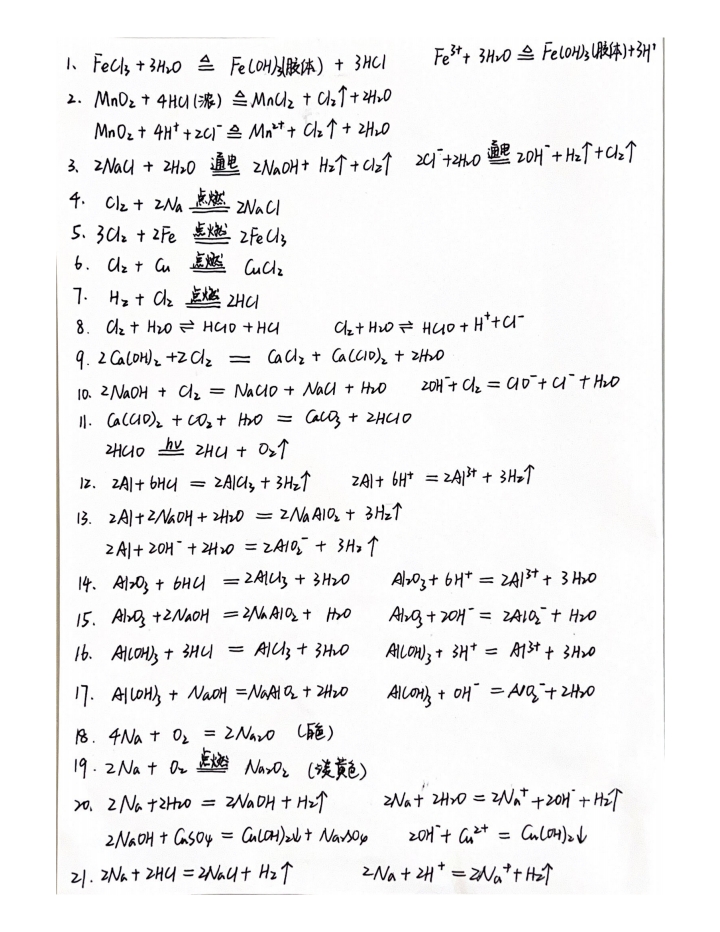 1、FeCl₃ + 3H₂O ≜ Fe(OH)₃(胶体) + 3HCl Fe³⁺ + 3H₂O ≜ Fe(OH)₃(胶体)+3H⁺
2. MnO₂ + 4HCl(浓) ≜ MnCl₂ + Cl₂↑ + 2H₂O
MnO₂ + 4H⁺ + 2Cl⁻ ≜ Mn²⁺ + Cl₂↑ + 2H₂O
3、2NaCl + 2H₂O 通电 2NaOH + H₂↑ + Cl₂↑ 2Cl⁻+2H₂O 通电 2OH⁻ + H₂↑ + Cl₂↑
4. Cl₂ + 2Na 点燃 2NaCl
5. 3Cl₂ + 2Fe 点燃 2FeCl₃
6. Cl₂ + Cu 点燃 CuCl₂
7. H₂ + Cl₂ 点燃 2HCl
8. Cl₂ + H₂O ⇌ HClO + HCl Cl₂ + H₂O ⇌ HClO + H⁺ + Cl⁻
9. 2Ca(OH)₂ + 2Cl₂ = CaCl₂ + Ca(ClO)₂ + 2H₂O
10. 2NaOH + Cl₂ = NaClO + NaCl + H₂O 2OH⁻ + Cl₂ = ClO⁻ + Cl⁻ + H₂O
11. Ca(ClO)₂ + CO₂ + H₂O = CaCO₃ + 2HClO
2HClO hν 2HCl + O₂↑
12. 2Al + 6HCl = 2AlCl₃ + 3H₂↑ 2Al + 6H⁺ = 2Al³⁺ + 3H₂↑
13. 2Al + 2NaOH + 2H₂O = 2NaAlO₂ + 3H₂↑
2Al + 2OH⁻ + 2H₂O = 2AlO₂⁻ + 3H₂↑
14. Al₂O₃ + 6HCl = 2AlCl₃ + 3H₂O Al₂O₃ + 6H⁺ = 2Al³⁺ + 3H₂O
15、Al₂O₃ + 2NaOH = 2NaAlO₂ + H₂O Al₂O₃ + 2OH⁻ = 2AlO₂⁻ + H₂O
16. Al(OH)₃ + 3HCl = AlCl₃ + 3H₂O Al(OH)₃ + 3H⁺ = Al³⁺ + 3H₂O
17. Al(OH)₃ + NaOH = NaAlO₂ + 2H₂O Al(OH)₃ + OH⁻ = AlO₂⁻ + 2H₂O
18. 4Na + O₂ = 2Na₂O (白色)
19. 2Na + O₂ 点燃 Na₂O₂ (淡黄色)
20. 2Na + 2H₂O = 2NaOH + H₂↑ 2Na + 2H₂O = 2Na⁺ + 2OH⁻ + H₂↑
2NaOH + CuSO₄ = Cu(OH)₂↓ + Na₂SO₄ 2OH⁻ + Cu²⁺ = Cu(OH)₂↓
21. 2Na + 2HCl = 2NaCl + H₂↑ 2Na + 2H⁺ = 2Na⁺ + H₂↑